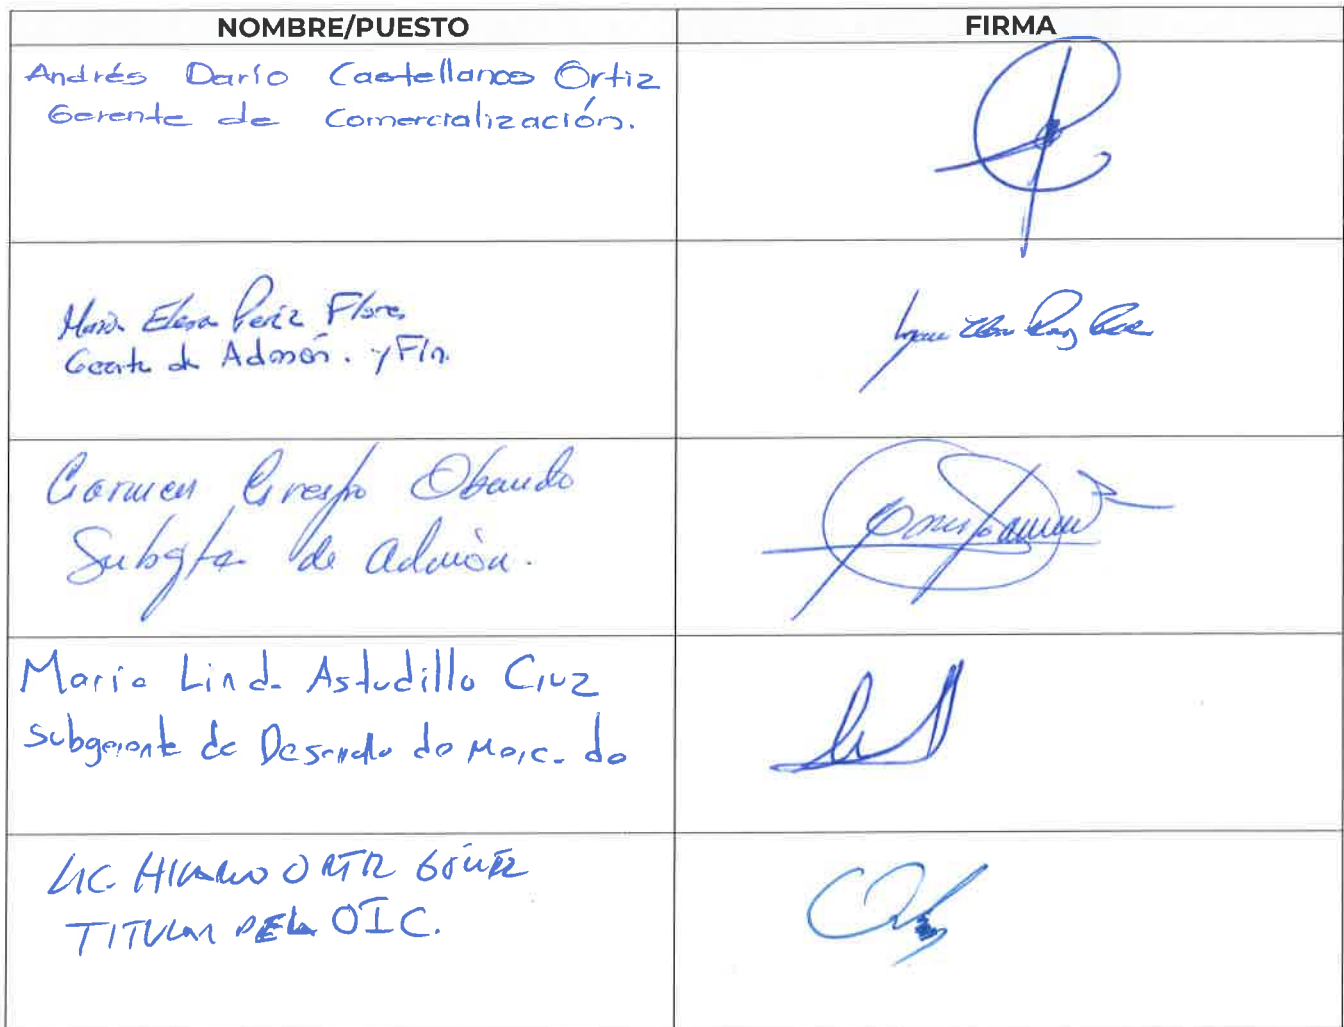 NOMBRE/PUESTO
FIRMA
Andrés Darío Castellanos Ortiz
Gerente de Comercialización.
María Elena Pérez Flores
Gerente de Admón. y Fin.
Carmen Crespo Obando
Subgte de admón.
María Linda Astudillo Cruz
Subgerente de Desarrollo de Mercado
LIC. HILARIO ORTIZ GÓMEZ
TITULAR DEL OIC.